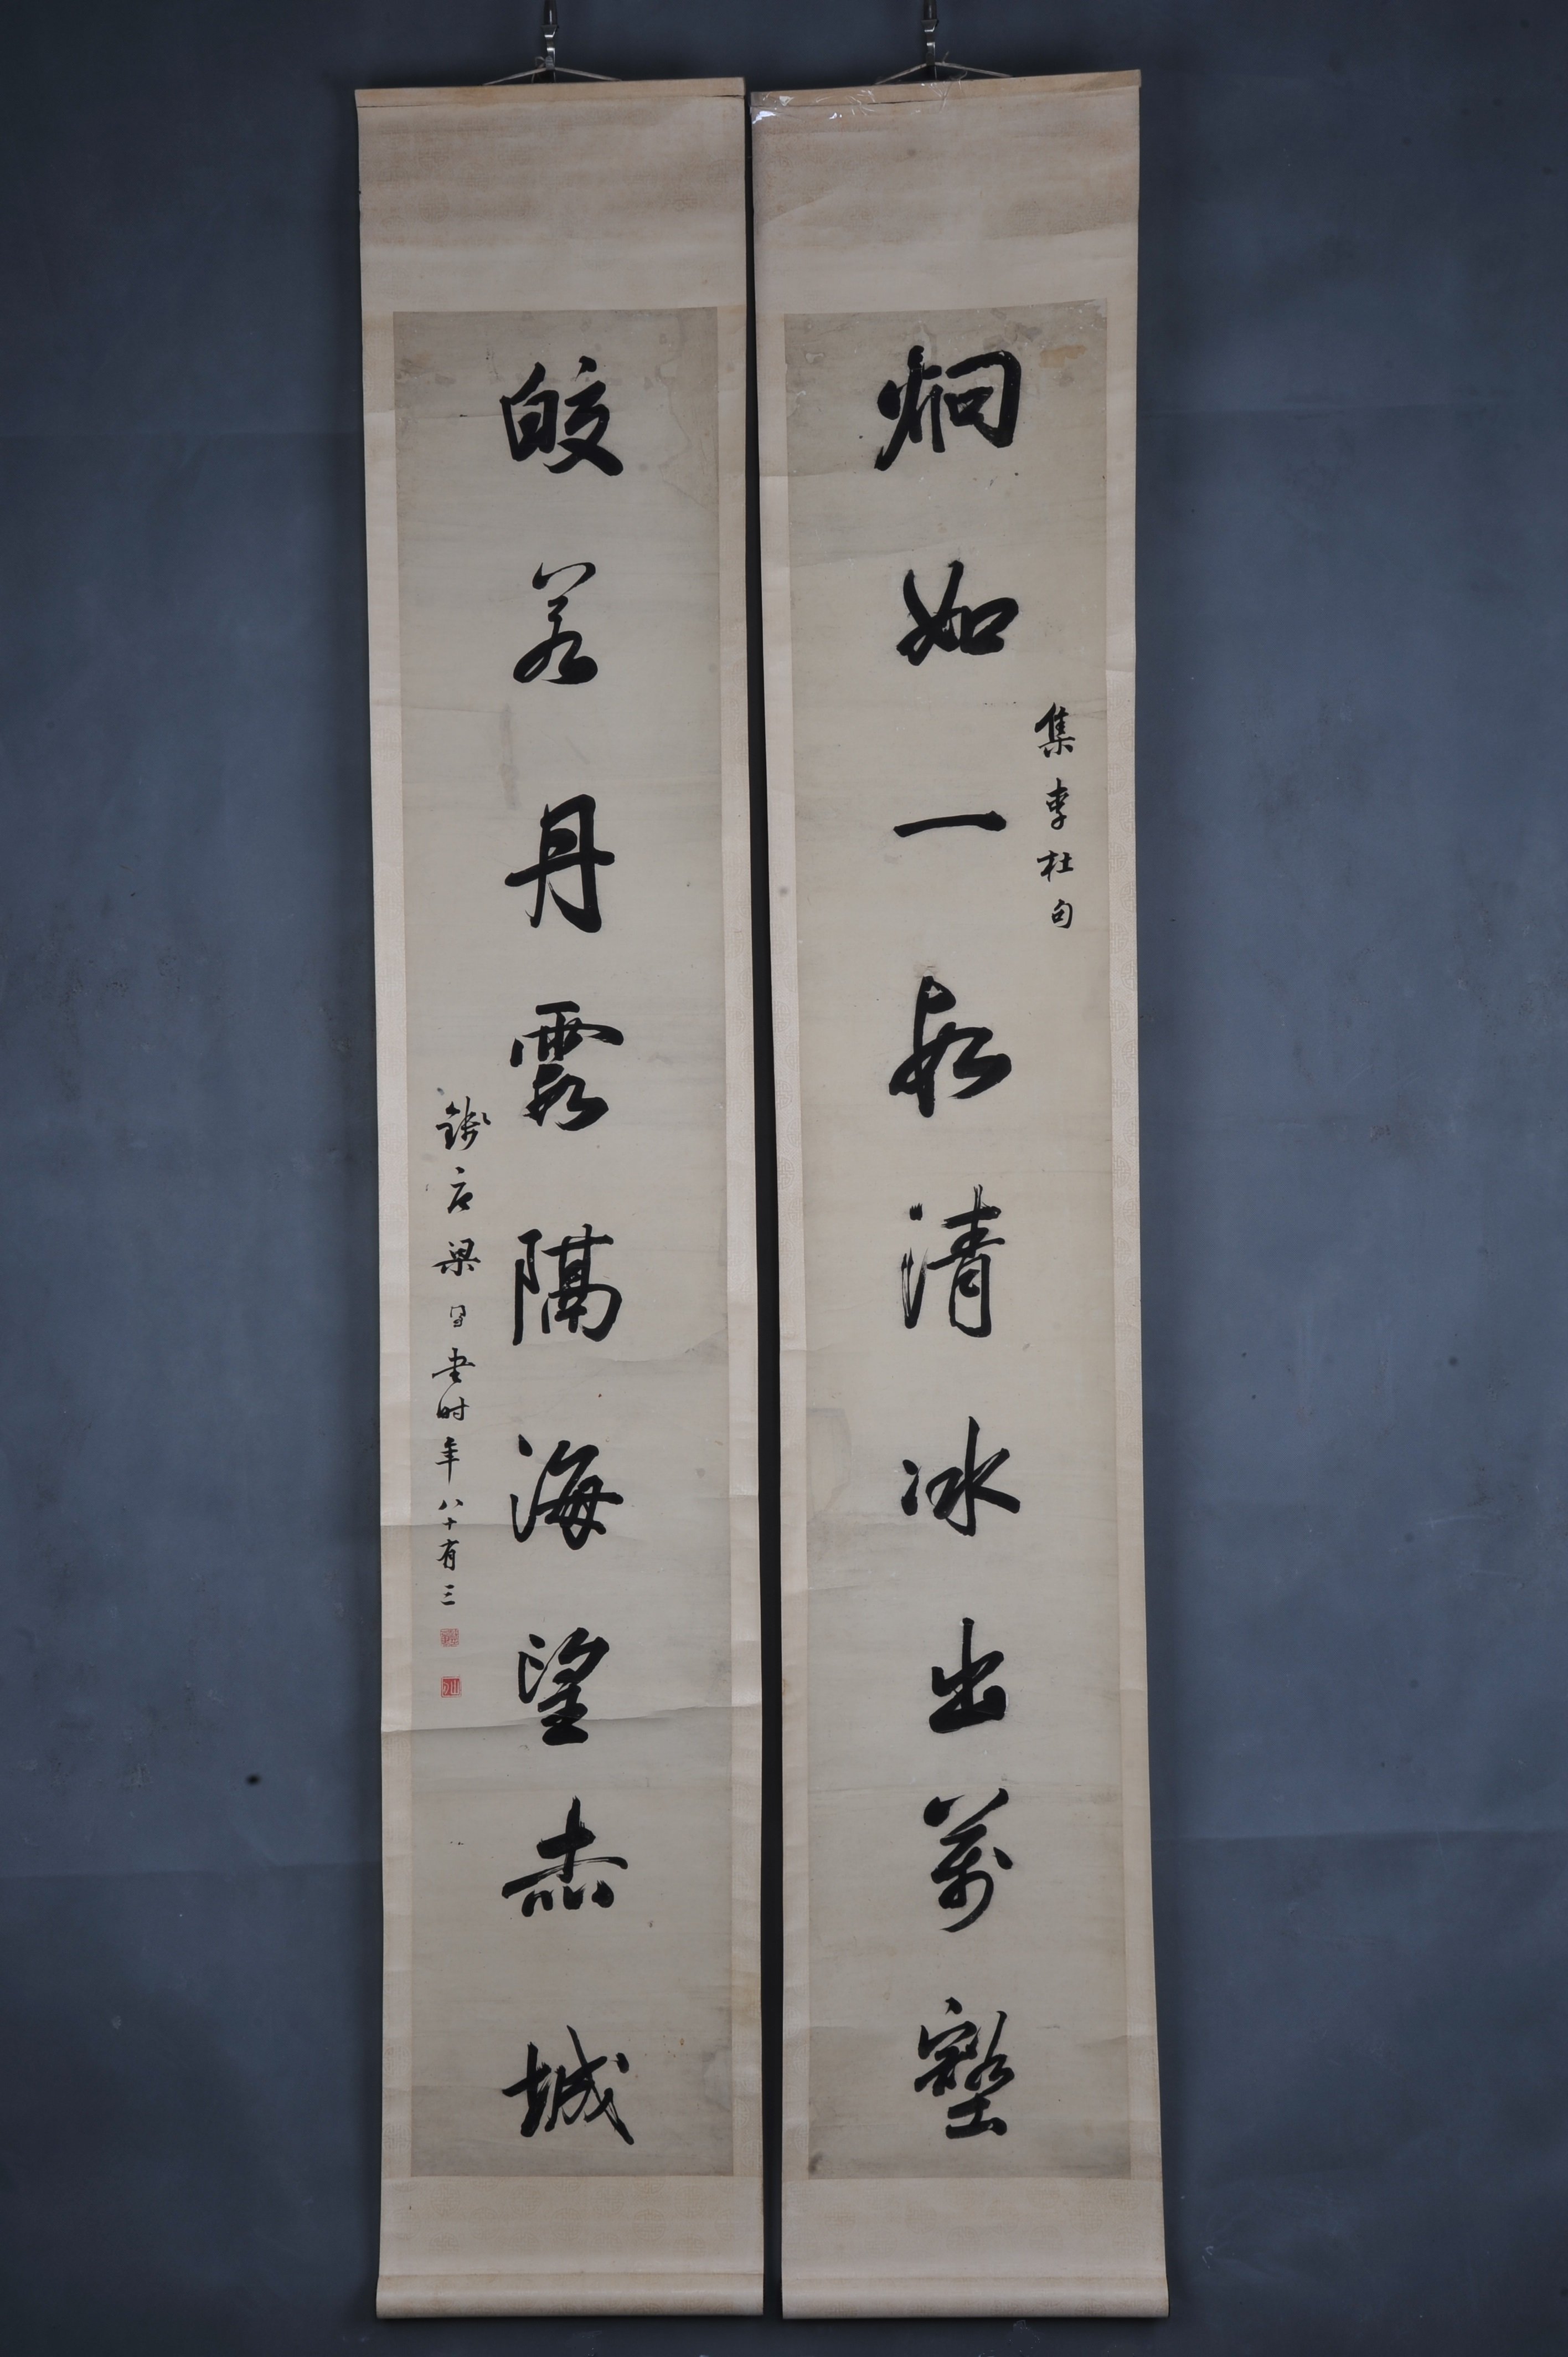 炯如一段清冰出萬壑
集李杜句
皎若丹霞隔海望赤城
錢唐梁同書时年八十有三